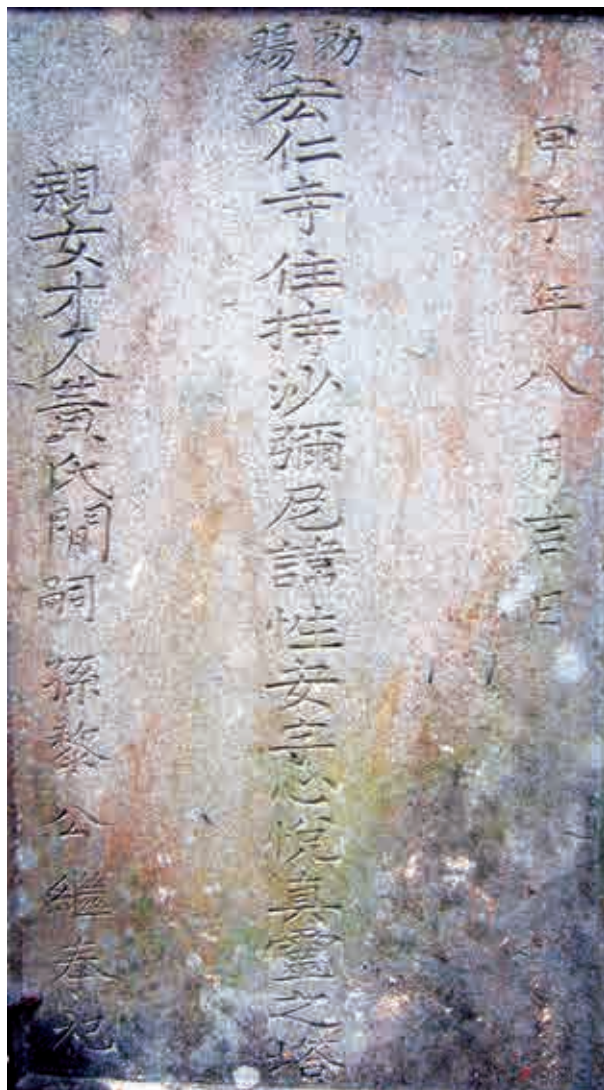 甲子年八月吉日
勅賜
宏仁寺住持沙彌尼諱性安字心悅真靈之塔
親女才人黃氏間嗣孫黎公繼奉祀